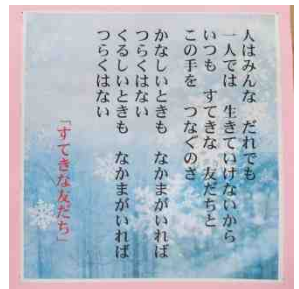 人はみんな　だれでも
一人では　生きていけないから
いつも　すてきな　友だちと
この手を　つなぐのさ
かなしいときも　なかまがいれば
つらくはない
くるしいときも　なかまがいれば
つらくはない
「すてきな友だち」